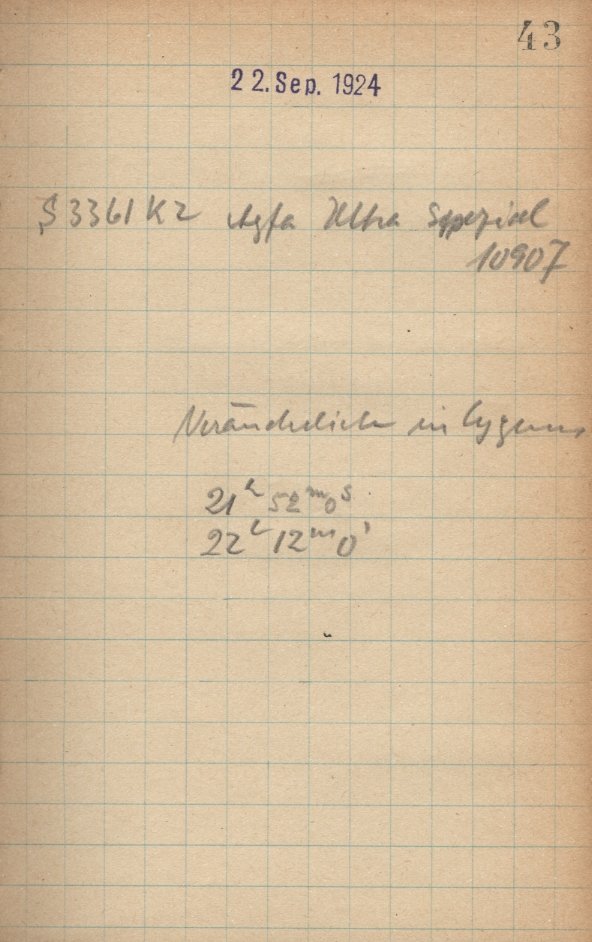 43
22. Sep. 1924
S 3361 K2 Agfa Ultra Spezial
10907
Veränderliche in Cygnus
21ʰ 52ᵐ 0ˢ
22ʰ 12ᵐ 0ˢ